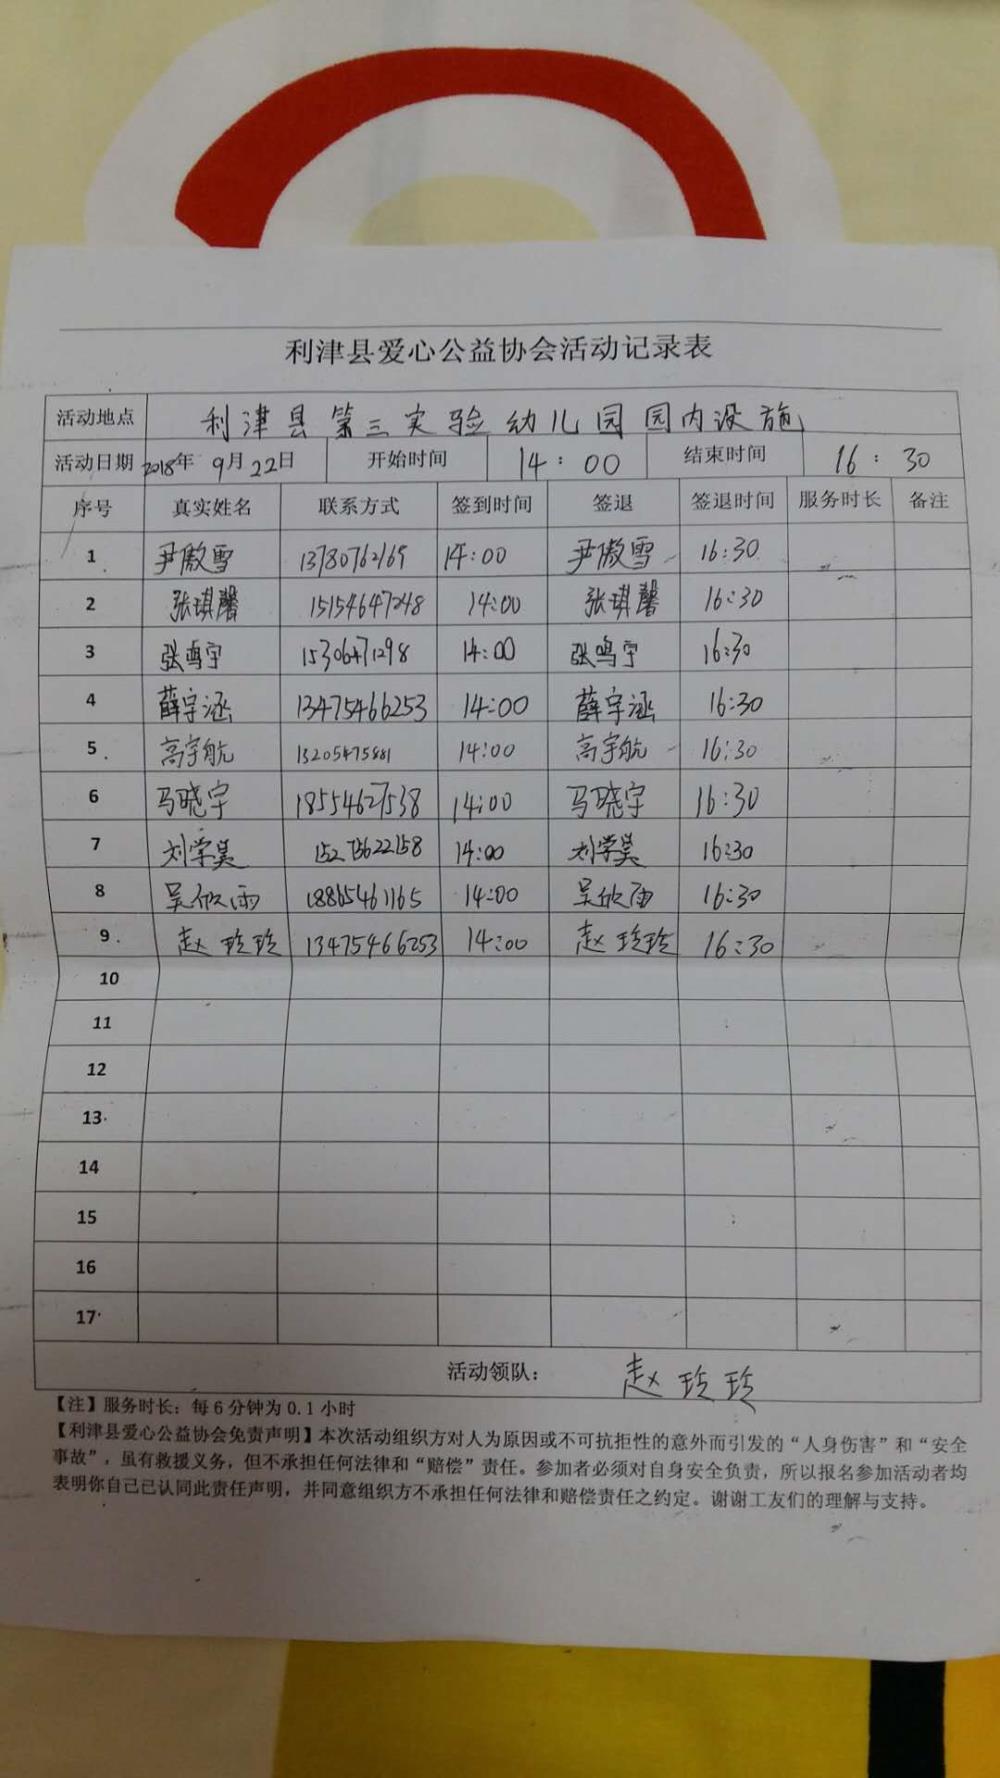 利津县爱心公益协会活动记录表
活动地点 利津县第三实验幼儿园园内设施
活动日期 2018年9月22日 开始时间 14:00 结束时间 16:30
序号 真实姓名 联系方式 签到时间 签退 签退时间 服务时长 备注
1 尹傲雪 13780762165 14:00 尹傲雪 16:30
2 张琪馨 15154647248 14:00 张琪馨 16:30
3 张鸣宇 15306471298 14:00 张鸣宇 16:30
4 薛宇涵 13475466253 14:00 薛宇涵 16:30
5 高宇航 13205475881 14:00 高宇航 16:30
6 马晓宇 18554627538 14:00 马晓宇 16:30
7 刘学昊 14:00 刘学昊 16:30
8 吴欣雨 18865461165 14:00 吴欣雨 16:30
9 赵玲玲 13475466253 14:00 赵玲玲 16:30
10
11
12
13
14
15
16
17
活动领队: 赵玲玲
【注】服务时长：每6分钟为0.1小时
【利津县爱心公益协会免责声明】本次活动组织方对人为原因或不可抗拒性的意外而引发的“人身伤害”和“安全
事故”，虽有救援义务，但不承担任何法律和“赔偿”责任。参加者必须对自身安全负责，所以报名参加活动者均
表明你自己已认同此责任声明，并同意组织方不承担任何法律和赔偿责任之约定。谢谢工友们的理解与支持。